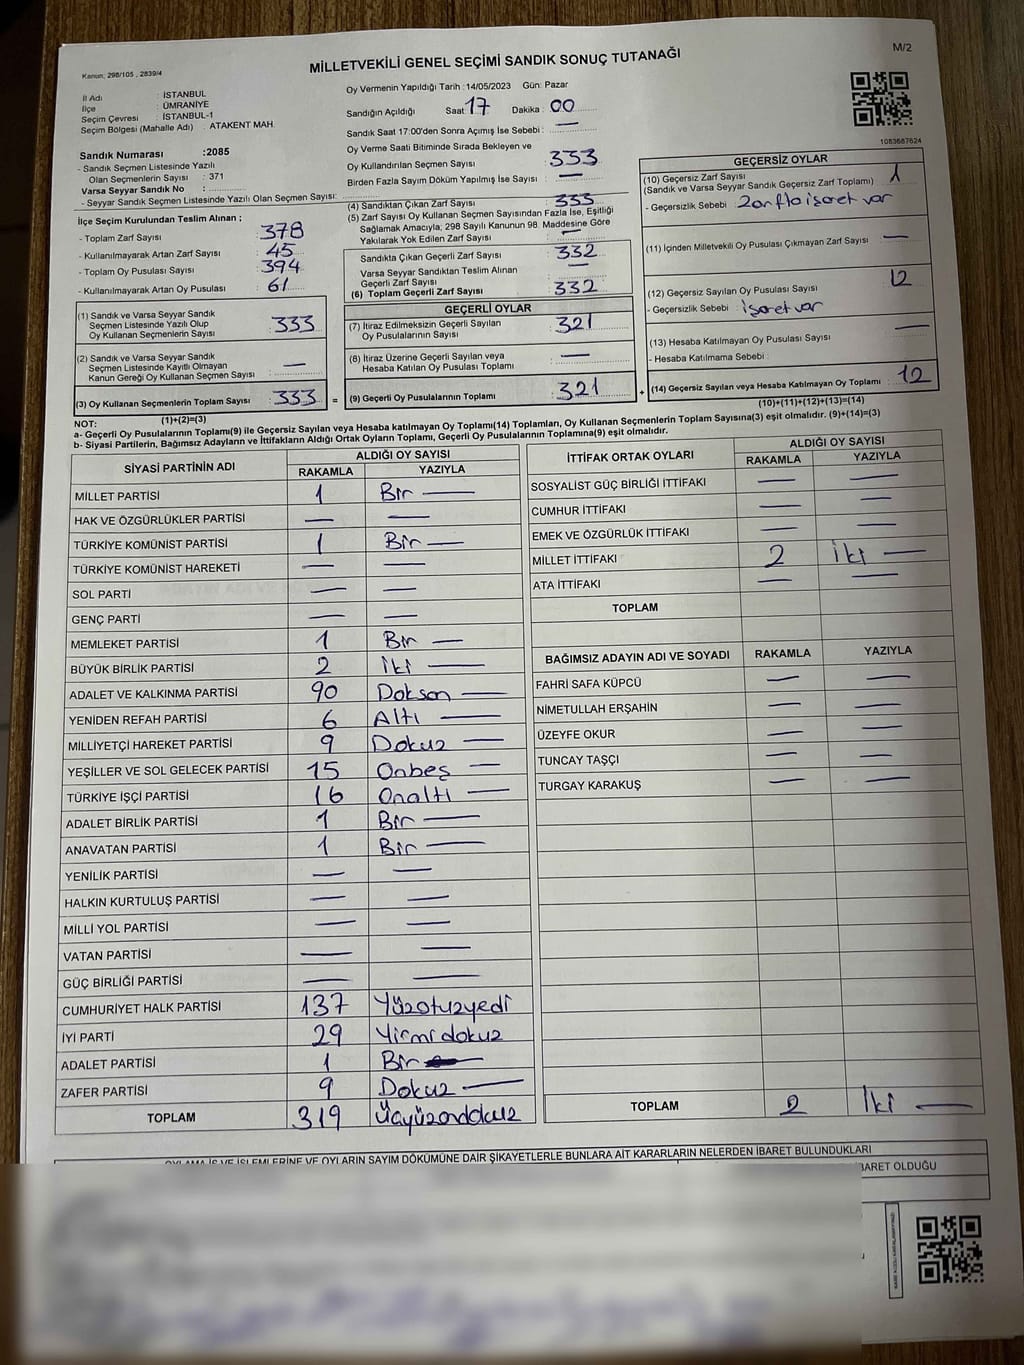 MİLLETVEKİLİ GENEL SEÇİMİ SANDIK SONUÇ TUTANAĞI
M/2
Kanun; 298/105 , 2839/4
İl Adı : İSTANBUL
İlçe : ÜMRANİYE
Seçim Çevresi : İSTANBUL-1
Seçim Bölgesi (Mahalle Adı) : ATAKENT MAH.
Oy Vermenin Yapıldığı Tarih : 14/05/2023 Gün: Pazar
Sandığın Açıldığı Saat 17 Dakika : 00
Sandık Saat 17:00'den Sonra Açımış İse Sebebi : —
1083687624
Sandık Numarası : 2085
- Sandık Seçmen Listesinde Yazılı
Olan Seçmenlerin Sayısı : 371
Varsa Seyyar Sandık No :
- Seyyar Sandık Seçmen Listesinde Yazılı Olan Seçmen Sayısı:
Oy Verme Saati Bitiminde Sırada Bekleyen ve
Oy Kullandırılan Seçmen Sayısı : 333
Birden Fazla Sayım Döküm Yapılmış İse Sayısı : —
İlçe Seçim Kurulundan Teslim Alınan ;
- Toplam Zarf Sayısı : 378
- Kullanılmayarak Artan Zarf Sayısı : 45
- Toplam Oy Pusulası Sayısı : 394
- Kullanılmayarak Artan Oy Pusulası : 61
(1) Sandık ve Varsa Seyyar Sandık
Seçmen Listesinde Yazılı Olup
Oy Kullanan Seçmenlerin Sayısı : 333
(2) Sandık ve Varsa Seyyar Sandık
Seçmen Listesinde Kayıtlı Olmayan
Kanun Gereği Oy Kullanan Seçmen Sayısı : —
(3) Oy Kullanan Seçmenlerin Toplam Sayısı : 333 =
(1)+(2)=(3)
(4) Sandıktan Çıkan Zarf Sayısı : 333
(5) Zarf Sayısı Oy Kullanan Seçmen Sayısından Fazla İse, Eşitliği
Sağlamak Amacıyla; 298 Sayılı Kanunun 98. Maddesine Göre
Yakılarak Yok Edilen Zarf Sayısı : —
Sandıkta Çıkan Geçerli Zarf Sayısı : 332
Varsa Seyyar Sandıktan Teslim Alınan
Geçerli Zarf Sayısı : —
(6) Toplam Geçerli Zarf Sayısı : 332
GEÇERLİ OYLAR
(7) İtiraz Edilmeksizin Geçerli Sayılan
Oy Pusulalarının Sayısı : 321
(8) İtiraz Üzerine Geçerli Sayılan veya
Hesaba Katılan Oy Pusulası Toplamı : —
(9) Geçerli Oy Pusulalarının Toplamı : 321 +
GEÇERSİZ OYLAR
(10) Geçersiz Zarf Sayısı : 1
(Sandık ve Varsa Seyyar Sandık Geçersiz Zarf Toplamı)
- Geçersizlik Sebebi : Zarfta işaret var
(11) İçinden Milletvekili Oy Pusulası Çıkmayan Zarf Sayısı : —
(12) Geçersiz Sayılan Oy Pusulası Sayısı : 12
- Geçersizlik Sebebi : işaret var
(13) Hesaba Katılmayan Oy Pusulası Sayısı : —
- Hesaba Katılmama Sebebi :
(14) Geçersiz Sayılan veya Hesaba Katılmayan Oy Toplamı : 12
(10)+(11)+(12)+(13)=(14)
NOT:
a- Geçerli Oy Pusulalarının Toplamı(9) ile Geçersiz Sayılan veya Hesaba katılmayan Oy Toplamı(14) Toplamları, Oy Kullanan Seçmenlerin Toplam Sayısına(3) eşit olmalıdır. (9)+(14)=(3)
b- Siyasi Partilerin, Bağımsız Adayların ve İttifakların Aldığı Ortak Oyların Toplamı, Geçerli Oy Pusulalarının Toplamına(9) eşit olmalıdır.
SİYASİ PARTİNİN ADI ALDIĞI OY SAYISI
RAKAMLA YAZIYLA
MİLLET PARTİSİ 1 Bir —
HAK VE ÖZGÜRLÜKLER PARTİSİ — —
TÜRKİYE KOMÜNİST PARTİSİ 1 Bir —
TÜRKİYE KOMÜNİST HAREKETİ — —
SOL PARTİ — —
GENÇ PARTİ — —
MEMLEKET PARTİSİ 1 Bir —
BÜYÜK BİRLİK PARTİSİ 2 iki —
ADALET VE KALKINMA PARTİSİ 90 Doksan —
YENİDEN REFAH PARTİSİ 6 Altı —
MİLLİYETÇİ HAREKET PARTİSİ 9 Dokuz —
YEŞİLLER VE SOL GELECEK PARTİSİ 15 Onbeş —
TÜRKİYE İŞÇİ PARTİSİ 16 Onaltı —
ADALET BİRLİK PARTİSİ 1 Bir —
ANAVATAN PARTİSİ 1 Bir —
YENİLİK PARTİSİ — —
HALKIN KURTULUŞ PARTİSİ — —
MİLLİ YOL PARTİSİ — —
VATAN PARTİSİ — —
GÜÇ BİRLİĞİ PARTİSİ — —
CUMHURİYET HALK PARTİSİ 137 Yüzotuzyedi
İYİ PARTİ 29 Yirmidokuz
ADALET PARTİSİ 1 Bir —
ZAFER PARTİSİ 9 Dokuz —
TOPLAM 319 Üçyüzondokuz
İTTİFAK ORTAK OYLARI ALDIĞI OY SAYISI
RAKAMLA YAZIYLA
SOSYALİST GÜÇ BİRLİĞİ İTTİFAKI — —
CUMHUR İTTİFAKI — —
EMEK VE ÖZGÜRLÜK İTTİFAKI — —
MİLLET İTTİFAKI 2 İki —
ATA İTTİFAKI — —
TOPLAM
BAĞIMSIZ ADAYIN ADI VE SOYADI RAKAMLA YAZIYLA
FAHRİ SAFA KÜPCÜ — —
NİMETULLAH ERŞAHİN — —
ÜZEYFE OKUR — —
TUNCAY TAŞÇI — —
TURGAY KARAKUŞ — —
TOPLAM 2 İki —
OYLAMA İŞ VE İŞLEMLERİNE VE OYLARIN SAYIM DÖKÜMÜNE DAİR ŞİKAYETLERLE BUNLARA AİT KARARLARIN NELERDEN İBARET BULUNDUKLARI
İBARET OLDUĞU